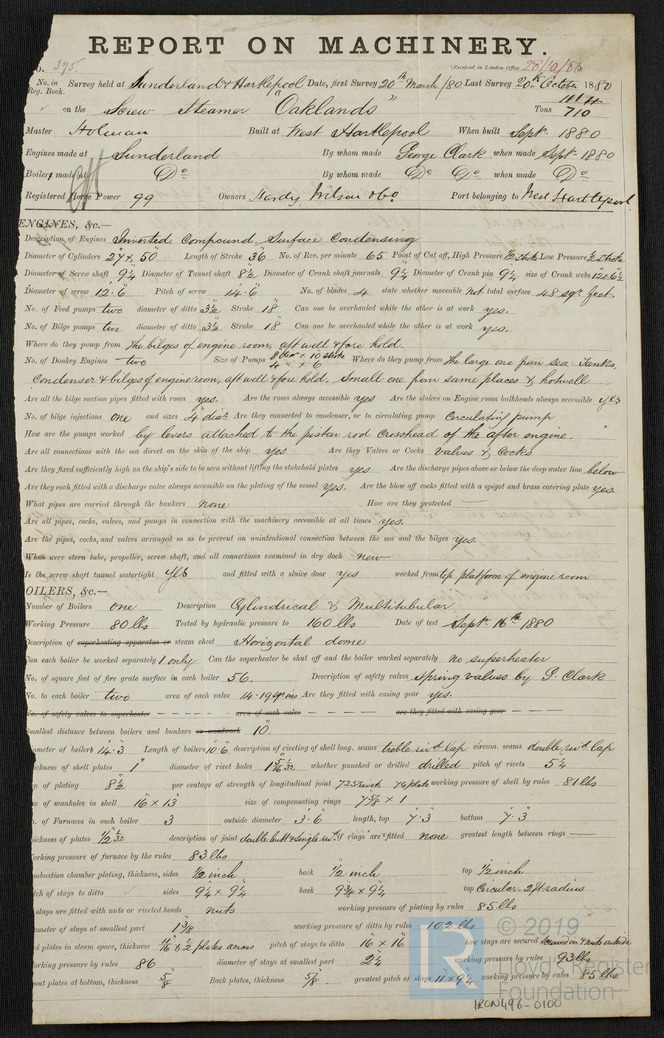 REPORT ON MACHINERY.
No. 395 (Received in London Office 28/10/80
No. in Reg. Book. Survey held at Sunderland & Hartlepool Date, first Survey 20th March/80 Last Survey 20th October 1880
on the Screw Steamer "Oaklands" Tons 710
Master Holman Built at West Hartlepool When built Septr 1880
Engines made at Sunderland By whom made George Clark when made Septr 1880
Boilers made at Do By whom made Do Do when made Do
Registered Horse Power 99 Owners Hardy Wilson & Co Port belonging to West Hartlepool
ENGINES, &c.—
Description of Engines Inverted, Compound, Surface Condensing
Diameter of Cylinders 27 & 50 Length of Stroke 36 No. of Rev. per minute 65 Point of Cut off, High Pressure Low Pressure
Diameter of Screw shaft 9¼ Diameter of Tunnel shaft 8½ Diameter of Crank shaft journals 9¼ Diameter of Crank pin 9¼ size of Crank webs 12 x 6½
Diameter of screw 12·6 Pitch of screw 14·6 No. of blades 4 state whether moveable not total surface 48 sqr feet
No. of Feed pumps two diameter of ditto 3½ Stroke 18 Can one be overhauled while the other is at work yes.
No. of Bilge pumps two diameter of ditto 3½ Stroke 18 Can one be overhauled while the other is at work yes.
Where do they pump from The bilges of engine room, aft well & fore hold.
No. of Donkey Engines two Size of Pumps 8 diar x 10 stroke 4" x 6" Where do they pump from the large one from sea Tanks,
Condenser & bilges of engine room, aft well & fore hold. Small one from same places & hotwell
Are all the bilge suction pipes fitted with roses yes. Are the roses always accessible yes Are the sluices on Engine room bulkheads always accessible yes
No. of bilge injections one and sizes 4" diar Are they connected to condenser, or to circulating pump Circulating pump
How are the pumps worked by levers attached to the piston rod crosshead of the after engine.
Are all connections with the sea direct on the skin of the ship yes Are they Valves or Cocks Valves & Cocks
Are they fixed sufficiently high on the ship's side to be seen without lifting the stokehold plates yes Are the discharge pipes above or below the deep water line below
Are they each fitted with a discharge valve always accessible on the plating of the vessel yes. Are the blow off cocks fitted with a spigot and brass covering plate yes.
What pipes are carried through the bunkers none How are they protected —
Are all pipes, cocks, valves, and pumps in connection with the machinery accessible at all times yes.
Are the pipes, cocks, and valves arranged so as to prevent an unintentional connection between the sea and the bilges yes.
When were stern tube, propeller, screw shaft, and all connections examined in dry dock new
Is the screw shaft tunnel watertight yes and fitted with a sluice door yes worked from top platform of engine room
BOILERS, &c.—
Number of Boilers one Description Cylindrical & Multitubular
Working Pressure 80 lbs Tested by hydraulic pressure to 160 lbs Date of test Septr 16th 1880
Description of superheating apparatus or steam chest Horizontal dome
Can each boiler be worked separately 1 only. Can the superheater be shut off and the boiler worked separately no superheater
No. of square feet of fire grate surface in each boiler 56. Description of safety valves Spring valves by G. Clark
No. to each boiler two area of each valve 14·19 sq ins Are they fitted with easing gear yes.
No. of safety valves to superheater area of each valve are they fitted with easing gear
Smallest distance between boilers and bunkers or woodwork 10"
Diameter of boilers 14·3 Length of boilers 10·6 description of riveting of shell long. seams treble rivtd lap circum. seams double rivtd lap
Thickness of shell plates 1" diameter of rivet holes 1 5/32 whether punched or drilled drilled pitch of rivets 5¼
Lap of plating 8½ per centage of strength of longitudinal joint working pressure of shell by rules 81 lbs
Size of manholes in shell 16 x 13 size of compensating rings 7⅝ x 1
No. of Furnaces in each boiler 3 outside diameter 3·6 length, top 7·3 bottom 7·3
Thickness of plates description of joint double butt & single rivtd if rings are fitted none greatest length between rings —
Working pressure of furnace by the rules 83 lbs
Combustion chamber plating, thickness, sides ½ inch back ½ inch top ½ inch
Pitch of stays to ditto sides 9¼ x 9¼ back 9¾ x 9½ top Circular 2 ft radius
If stays are fitted with nuts or riveted heads nuts working pressure of plating by rules 85 lbs
Diameter of stays at smallest part 1⅜ working pressure of ditto by rules 102 lbs
End plates in steam space, thickness pitch of stays to ditto 16 x 16 how stays are secured screwed in & nuts outside
Working pressure by rules 86 diameter of stays at smallest part 2¼ working pressure by rules 93 lbs
Front plates at bottom, thickness ⅝ Back plates, thickness ⅝ greatest pitch of stays 11 x 9¼ working pressure by rules 85 lbs
© 2019
Lloyd's Register
Foundation
IRON496-0100